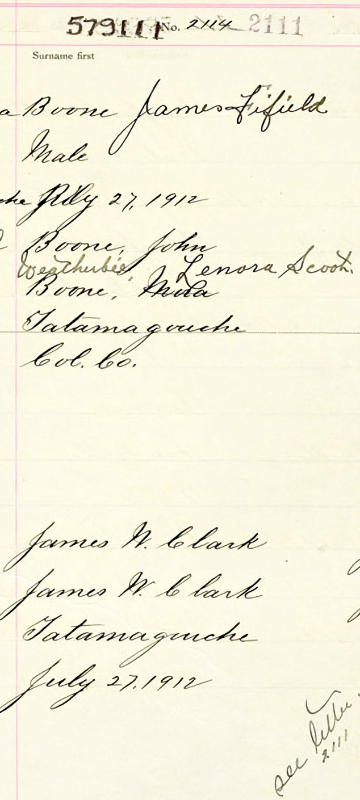 579111 No. 2114 2111
Surname first
a Boone James Fifield
Male
che July 27, 1912
Boone, John
Weatherbie, Lenora Scott.
Boone, Mina
Tatamagouche
Col. Co.
James W. Clark
James W. Clark
Tatamagouche
July 27, 1912
see letter
2111